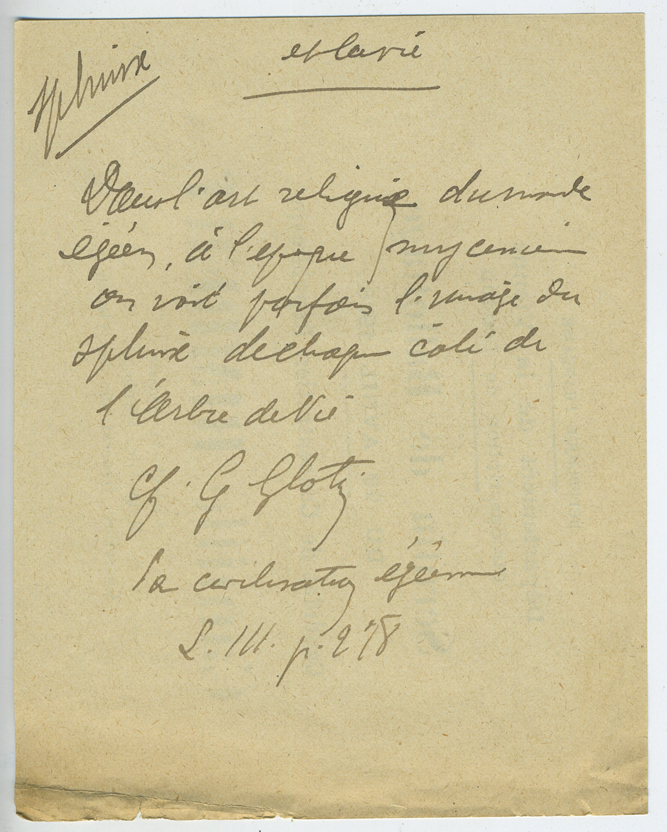 Sphinx
et la vie
Dans l'art religieux du monde
égéen, à l'époque mycénien
on voit parfois l'image du
sphinx de chaque côté de
l'Arbre de Vie
cf. G Glotz
La civilisation égéenne
L. III. p. 278